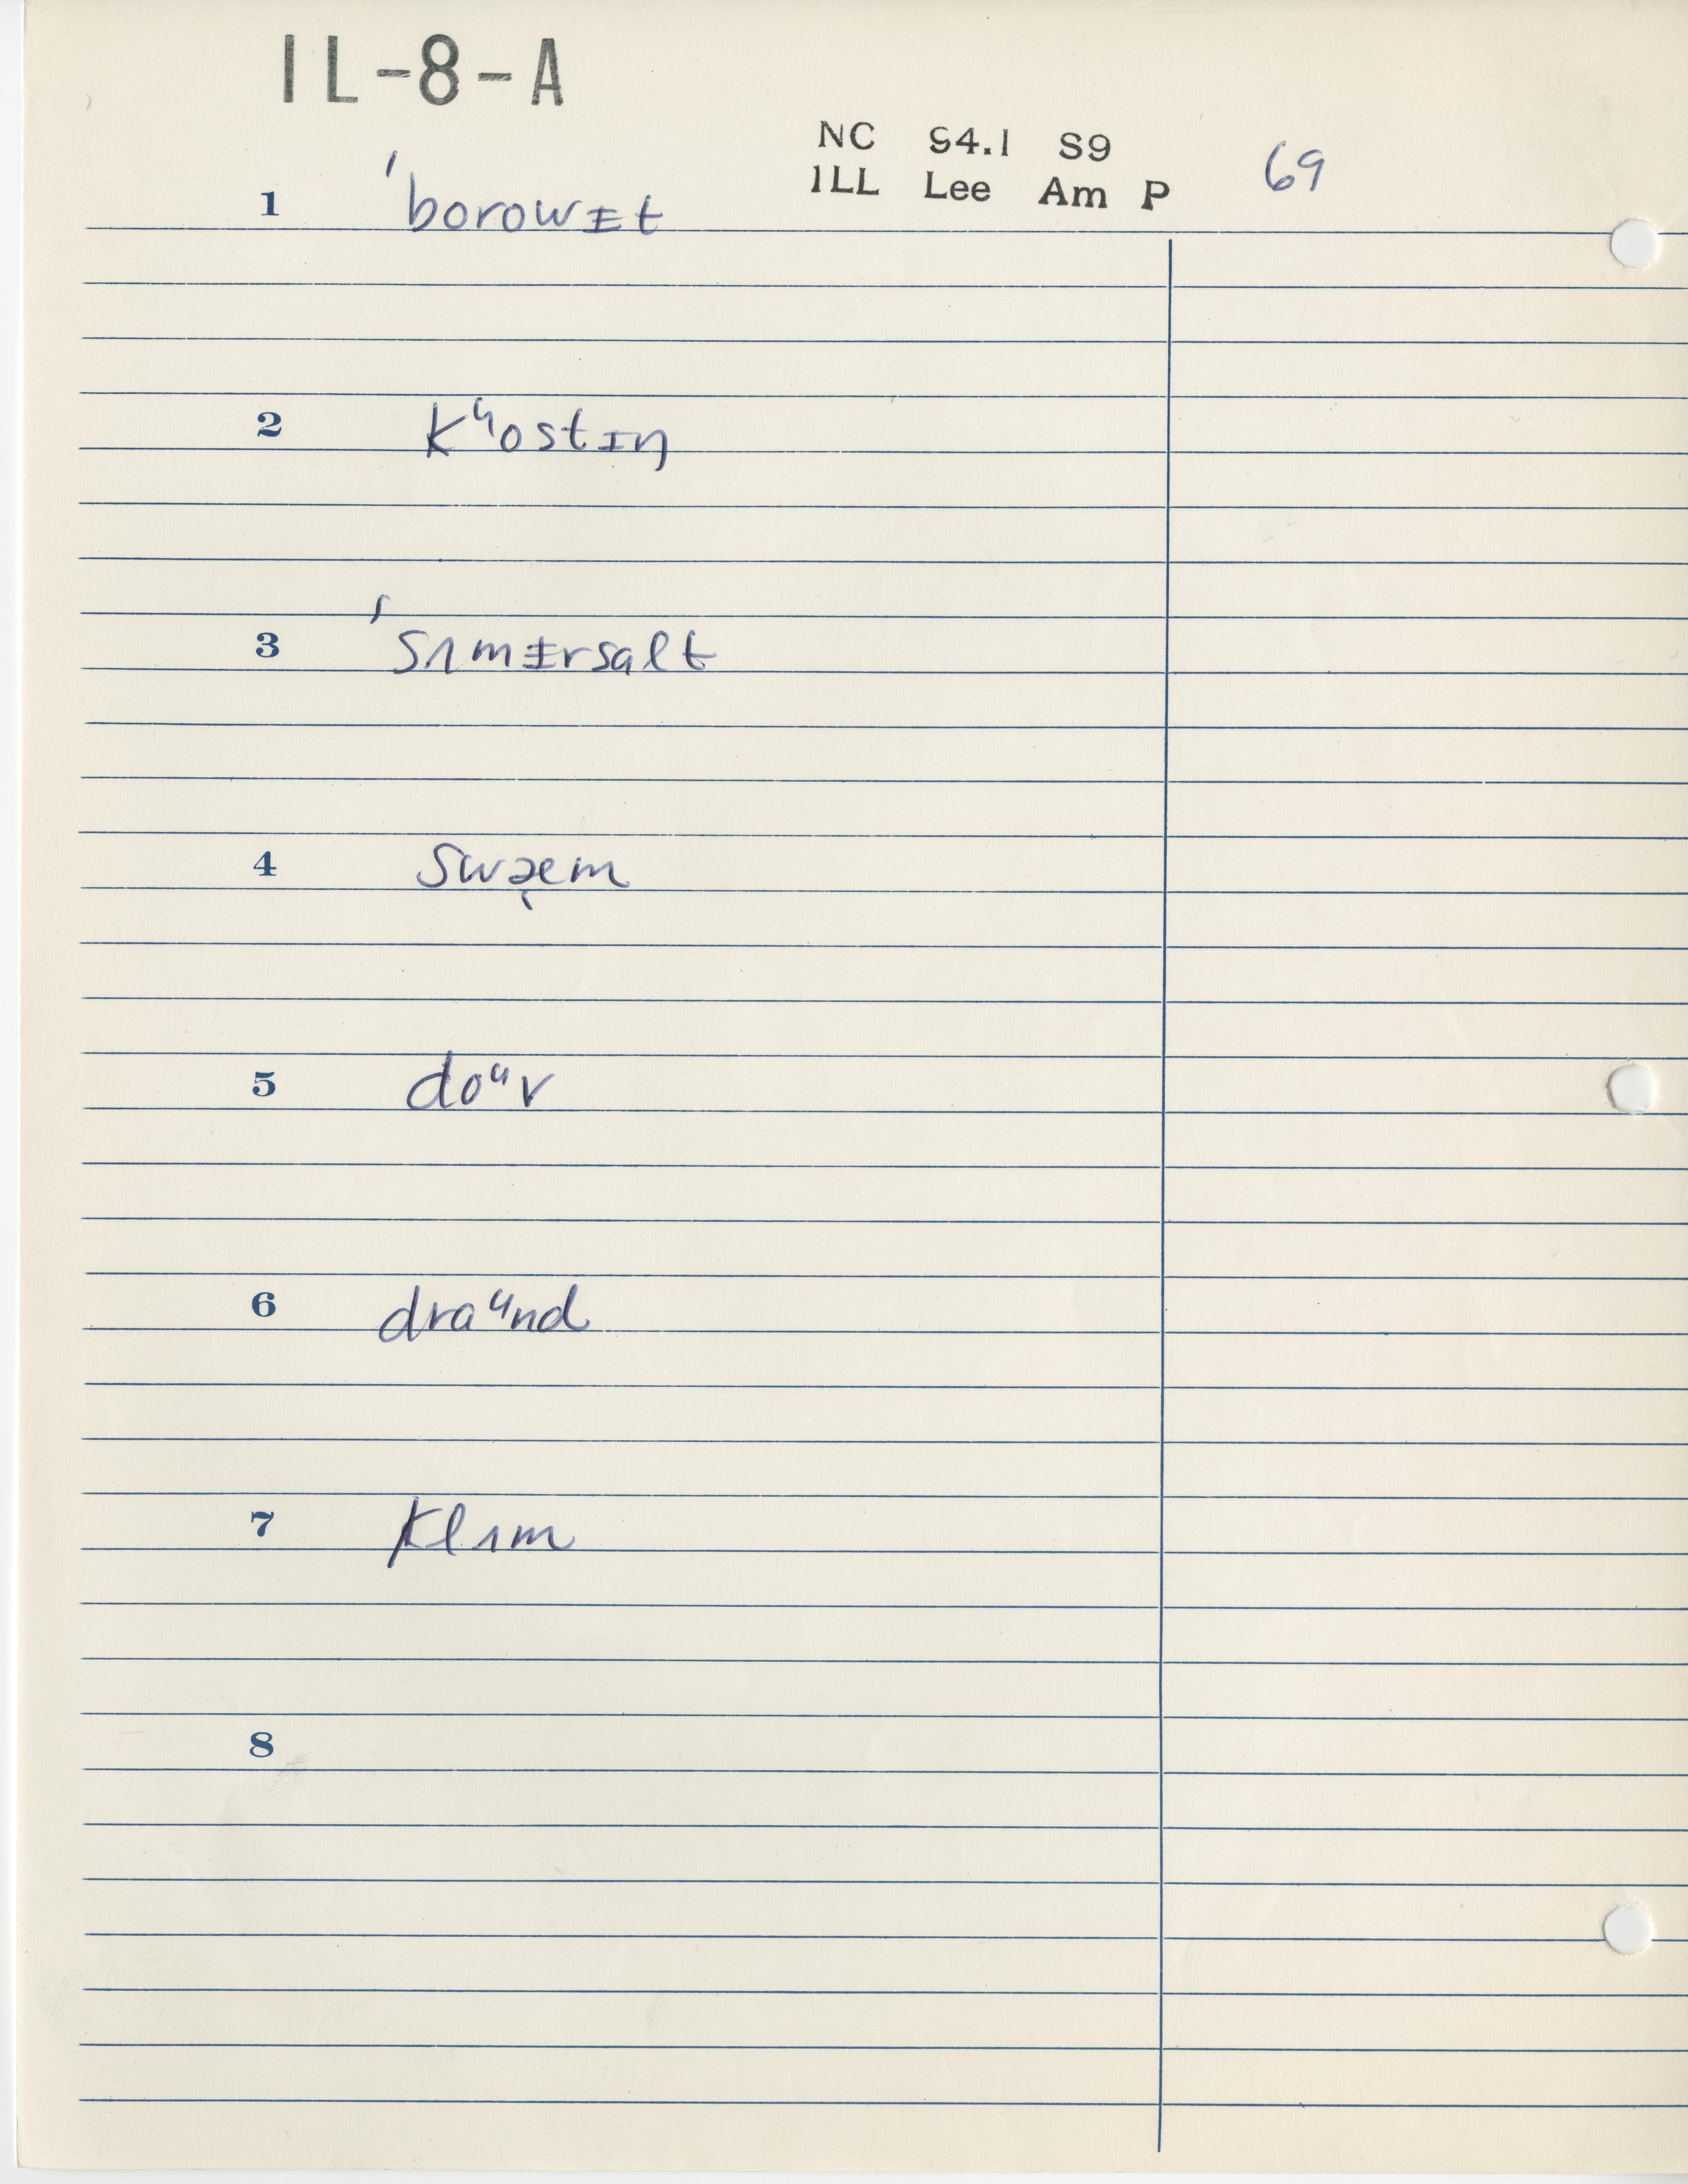 IL-8-A
NC S4.1 S9 69
ILL Lee Am P
1 ˈborowɪ̵t
2 kʰostɪŋ
3 ˈsʌmɪ̵rsalt
4 swæ̜m
5 doᵘv
6 draᵘnd
7 klʌm
8